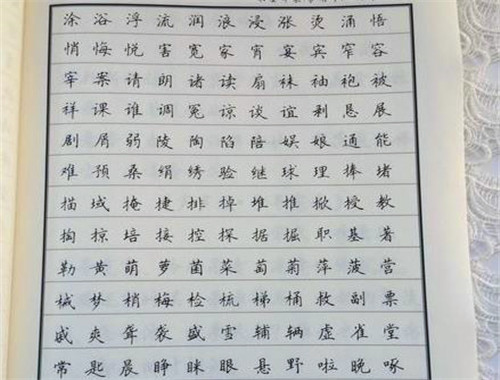 涂浴浮流润浪浸涨烫涌悟
悄悔悦害宽家宵宴宾窄容
宰案请朗诸读扇袜袖袍被
祥课谁调冤谅谈谊剥恳展
剧屑弱陵陶陷陪娱娘通能
难预桑绢绣验继球理捧堵
描域掩捷排掉堆推掀授教
掏掠培接控探据掘职基著
勒黄萌萝菌菜萄菊萍菠营
械梦梢梅检梳梯桶救副票
戚爽聋袭盛雪辅辆虚雀堂
常匙晨睁眯眼悬野啦晚啄